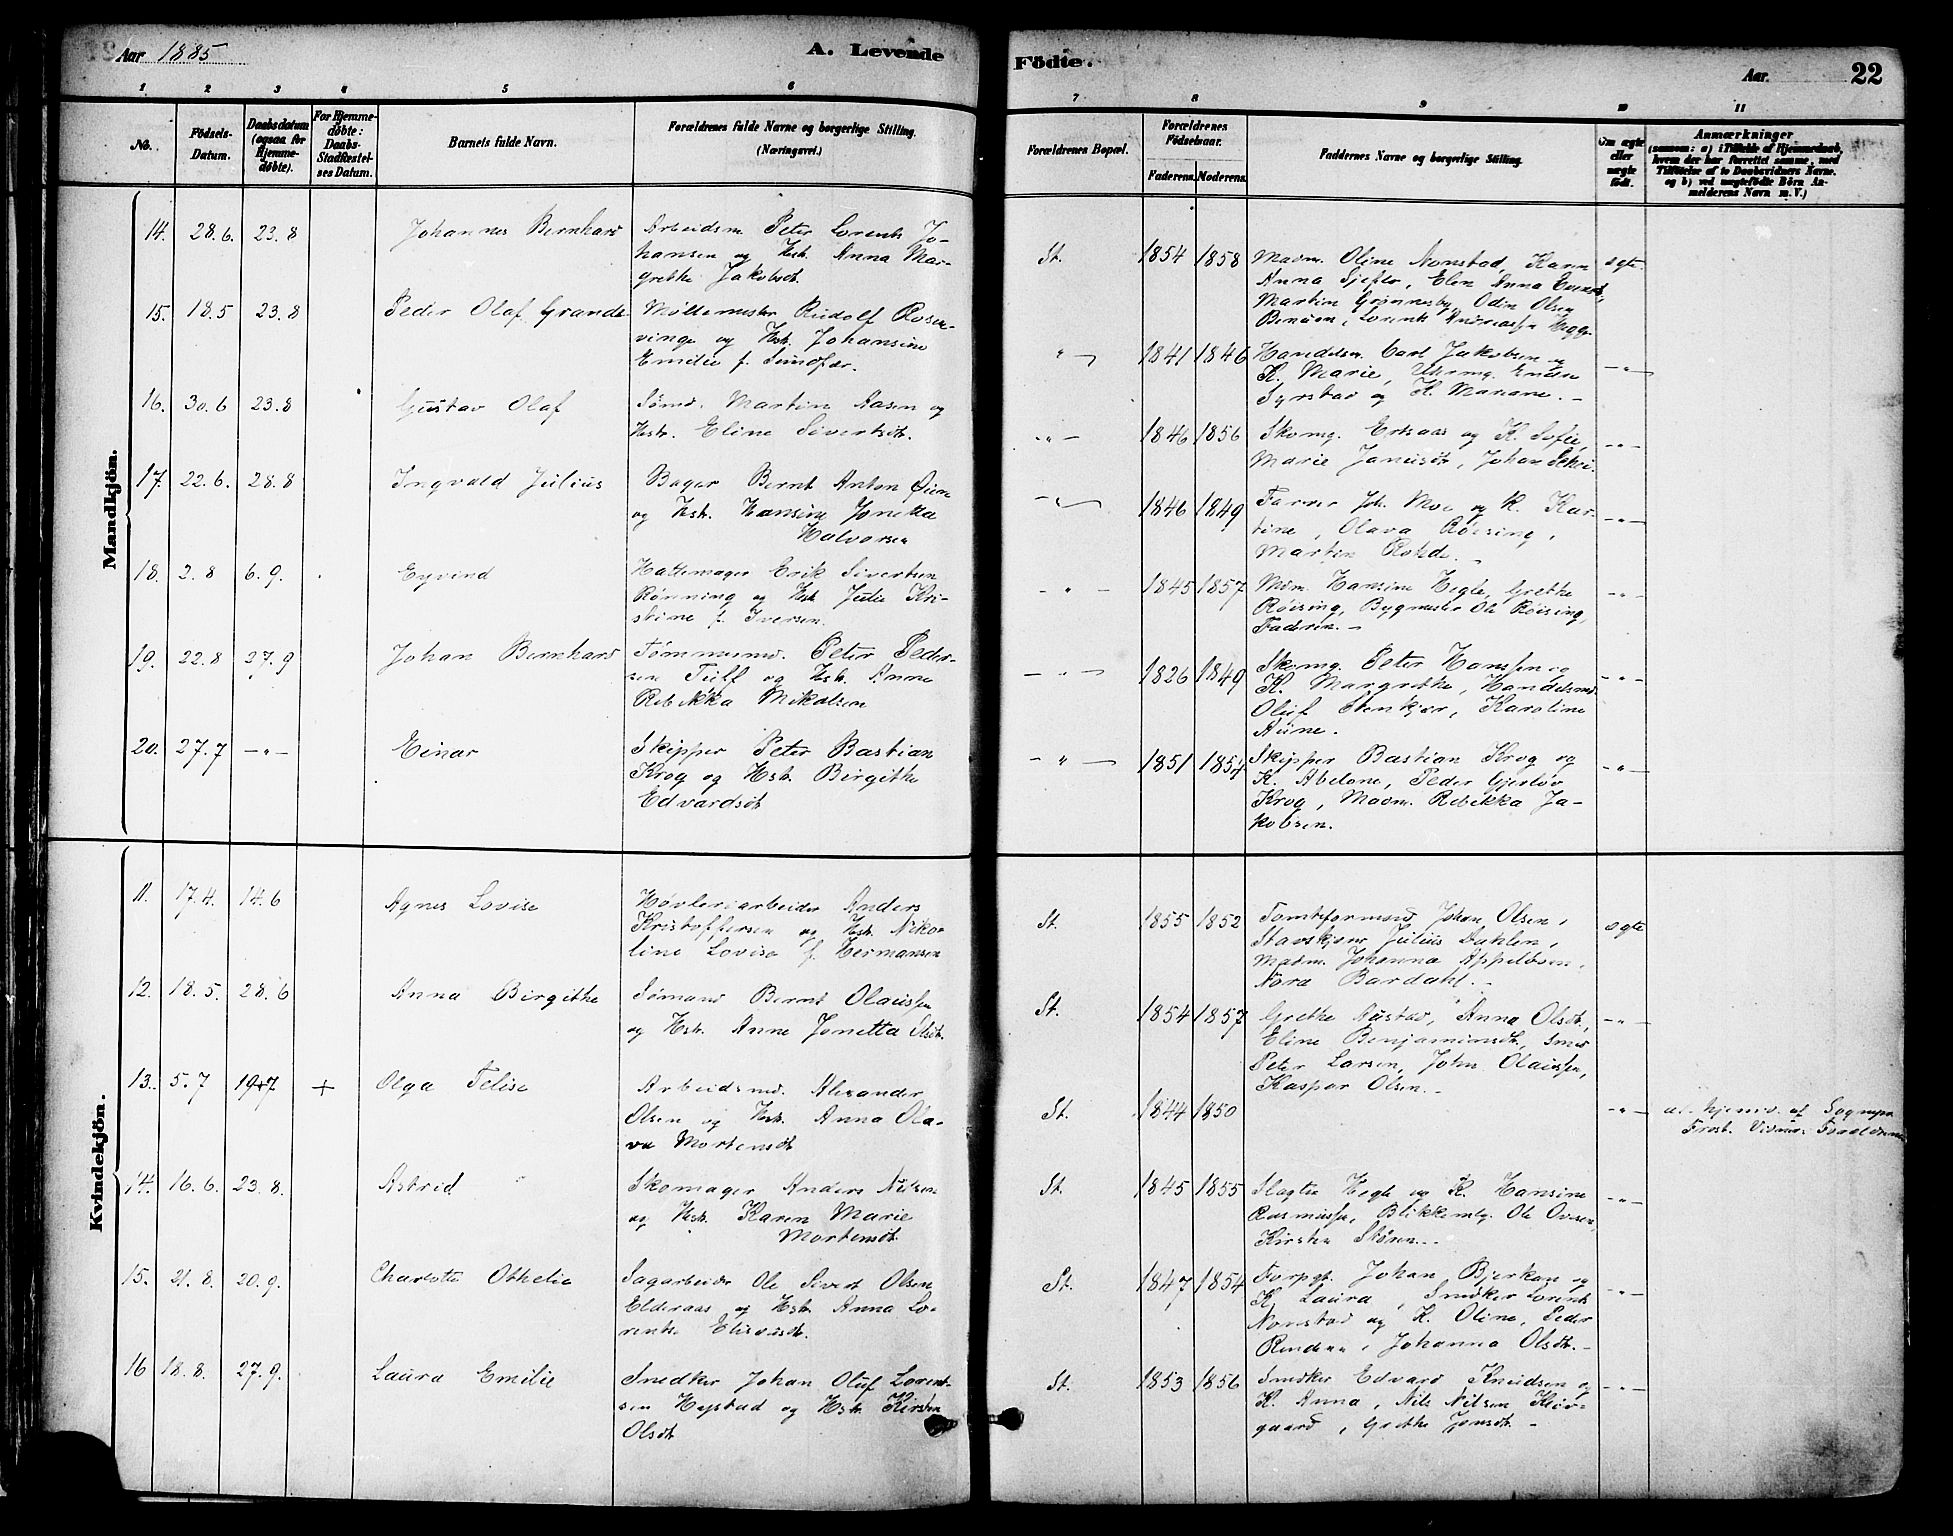 Aar 1885
A. Levende
Födte.
Aar.
22
1 2 3 4 5 6 7 8 9 10 11
No.
Födsels-
Datum.
Daabsdatum
(ogsaa for
Hjemme-
døbte).
For Hjemme-
døbte:
Daabs-
Stadfæstel-
ses Datum.
Barnets fulde Navn.
Forældrenes fulde Navne og borgerlige Stilling.
(Næringsvei.)
Forældrenes Bopæl.
Forældrenes
Födselsaar.
Faderens. Moderens.
Faddernes Navne og borgerlige Stilling.
Om ægte
eller
uægte
født.
Anmærkninger
(saasom: a) i Tilfælde af Hjemmedaab,
hvem der har forrettet samme, med
Tilföielse af to Daabsvidners Navne.
og b) ved uægtefödte Börn An-
melderens Navn m. V.)
Mandkjön.
14. 28.6. 23.8 Johannes Bernhard
Arbeidsm. Peter Lorents Jo-
hansen og Hstr. Anna Mar-
grethe Jakobsdt.
St. 1854 1858
Madm. Oline Nonstad, Karen
Anna Sjefte, Elen Anna
Martin Grønnesby, Odin Olsen
Lorents Andreassen
ægte
15. 18.5 23.8 Peder Olaf Grande
Møllemester Rudolf Rosen-
vinge og Hstr. Johansine
Emilie f. Sundfær.
" 1841 1846
Handelsm. Carl Jakobsen og
K. Marie, Uhrmg.
Syrstad og K. Mariane. -
-"-
16. 30.6 23.8 Gustav Olaf
Sømd. Martin Aasen og
Hstr. Eline Sivertsdt.
-"- 1846 1856
Skomg. og K. Sofie,
Marie Janusdt, Johan
-"-
17. 22.6. 28.8 Ingvald Julius
Bager Bernt Anton Øien
og Hstr. Hansine Jonetta
Halvorsen
-"- 1846 1849
Farver Joh. Moe og K. Kar-
tine, Olava Røising,
Martin Rohde. -
-"-
18. 2.8 6.9. Eyvind
Hattemager Erik Sivertsen
Rønning og Hstr. Julie Kri-
stine f. Iversen.
-"- 1845 1857
Mdm. Hansine Hegle, Grethe
Røising, Bygmester Ole Røising,
Faderen. -
-"-
19. 22.8 27.9 Johan Bernhard
Tømmermd. Peter Peder-
sen Tuff og Hstr. Anne
Rebekka Mikalsen
-"- 1826 1849
Skomg. Peter Hanssen og
K. Margrethe, Handelsmd.
Oluf Stenkjær, Karoline
Aune.
-"-
20. 27.7 -"- Einar
Skipper Peter Bastian
Krog og Hstr. Birgithe
Edvardsdt
-"- 1851 1857
Skipper Bastian Krog og
K. Abelone, Peder Gjerløv
Krog, Madm. Rebekka Ja-
kobsen.
-"-
Kvindekjön.
11. 17.4. 14.6 Agnes Lovise
Høvleriarbeider Anders
Kristoffersen og Hstr. Niko-
line Lovise f. Hermansen
St. 1855 1852
Tomteformand Johan Olsen,
Stavskjær Julius Dahlen,
Madm. Johanna Appelosen,
Nora Bardahl. -
ægte
12. 18.5. 28.6 Anna Birgithe
Sømand Bernt Olaussen
og Hstr. Anne Jonetta Olsdt.
St. 1854 1857
Grethe Austad, Anna Olsdt,
Eline Benjaminsdt, Smed
Peter Larsen, John Olaussen,
Kaspar Olsen. -
-"-
13. 5.7 19.7 + Olga Felise
Arbeidsmd. Alexander
Olsen og Hstr. Anna Ola-
va Mortensdt
St. 1844 1850
-"-
hjemd. af Sognepr
Frost. Vidner: Forældrene
14. 16.6. 23.8. Astrid
Skomager Anders Nilsen
og Hstr. Karen Marie
Mortensdt.
St. 1845 1855
Slagter Hegle og K. Hansine
Rasmussen, Blikkensl. Ole Ovesen,
Kirsten Støren. -
-"-
15. 21.8. 20.9. Charlotte Othelie
Sagarbeider Ole Sivert Olsen
Elderaas og Hstr. Anna Lo-
rentse Eliseusdt.
St. 1847 1854
Forpgt. Johan Bjerkan og
K. Laura, Snedker Lorents
Nonstad og K. Oline, Peder
Johanna Olsdt. -
-"-
16 18.8. 27.9. Laura Emilie
Snedker Johan Oluf Lorent-
sen Hegstad og Hstr. Kirsten
Olsdt
St. 1853 1856
Snedker Edvard Knudsen og
K. Anna, Nils Nilsen
gaard, Grethe Jonsdt. -
-"-